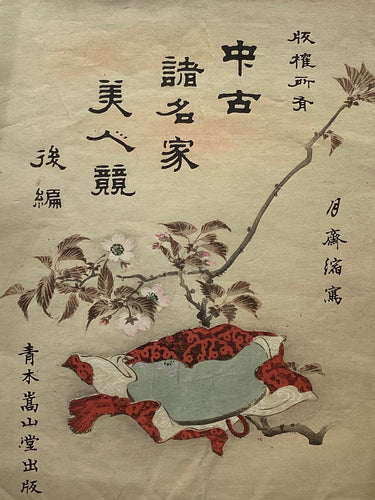 版權所有
中古
諸名家
美人競
後編
月齋縮寫
青木嵩山堂出版